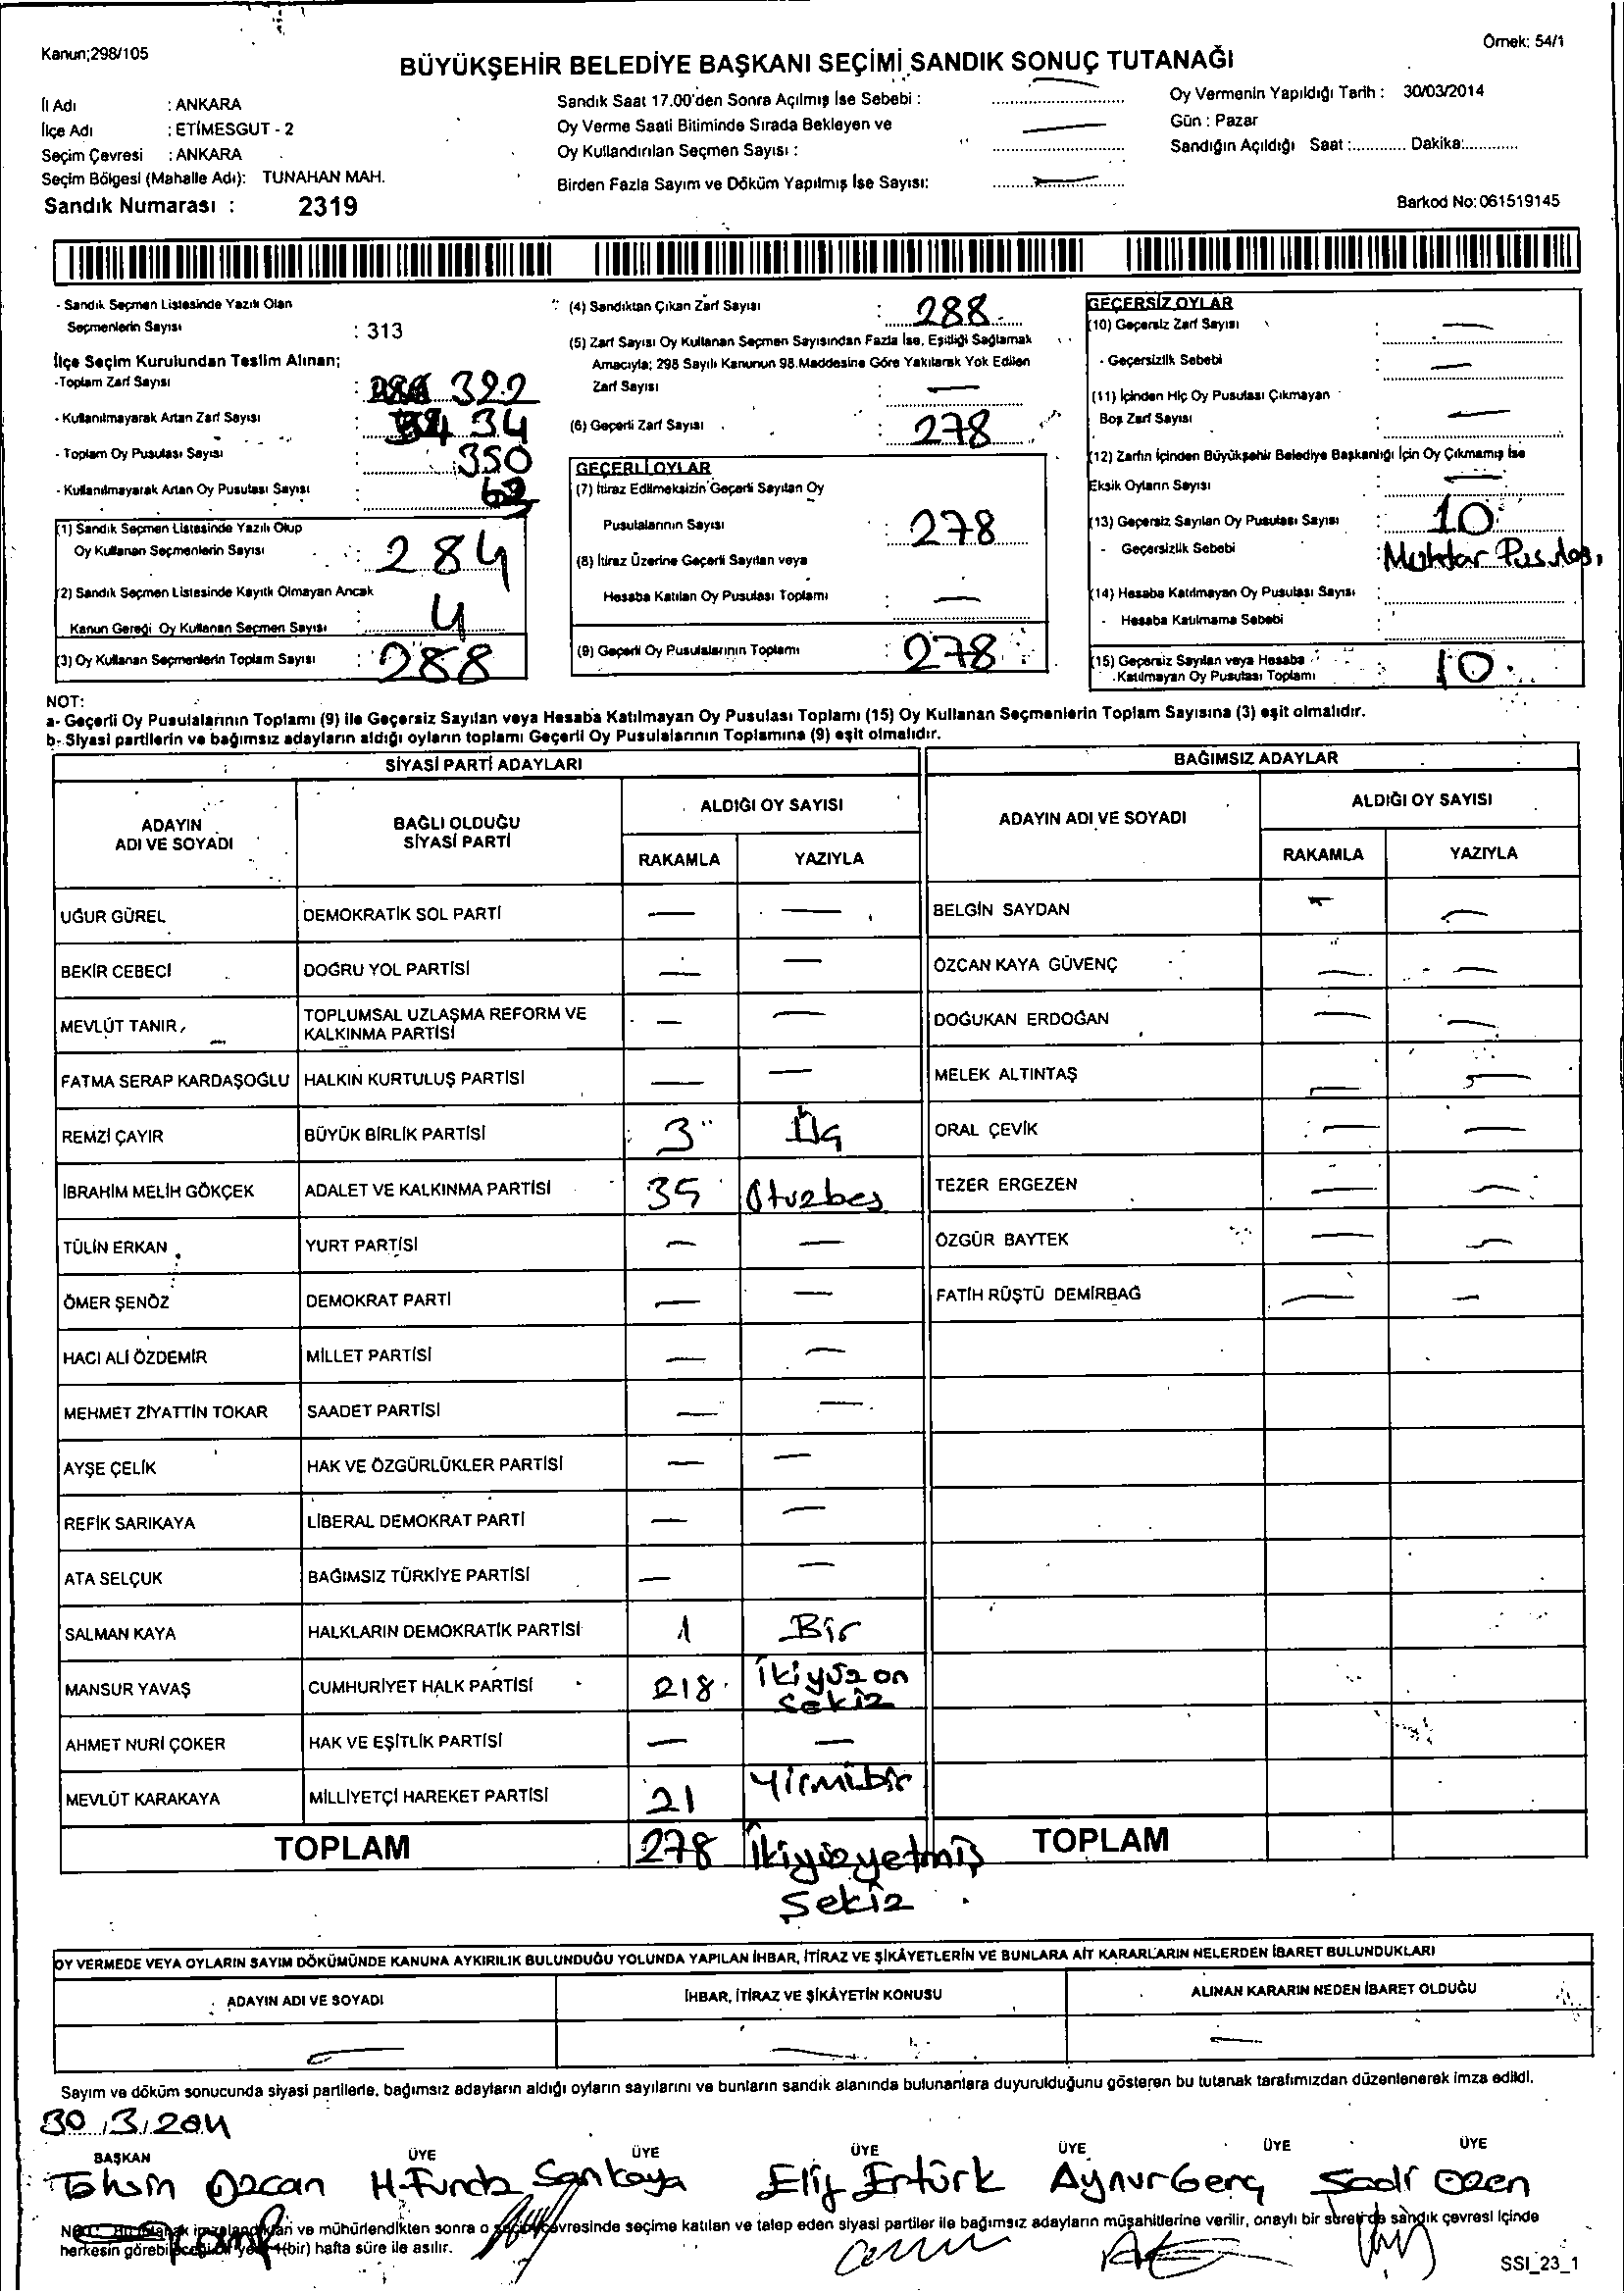 Kanun;298/105
Örnek: 54/1
BÜYÜKŞEHİR BELEDİYE BAŞKANI SEÇİMİ SANDIK SONUÇ TUTANAĞI
İl Adı : ANKARA
İlçe Adı : ETİMESGUT - 2
Seçim Çevresi : ANKARA
Seçim Bölgesi (Mahalle Adı): TUNAHAN MAH.
Sandık Numarası : 2319
Sandık Saat 17.00'den Sonra Açılmış İse Sebebi :
Oy Verme Saati Bitiminde Sırada Bekleyen ve
Oy Kullandırılan Seçmen Sayısı :
Birden Fazla Sayım ve Döküm Yapılmış İse Sayısı:
Oy Vermenin Yapıldığı Tarih : 30/03/2014
Gün : Pazar
Sandığın Açıldığı Saat :............ Dakika:............
Barkod No: 061519145
- Sandık Seçmen Listesinde Yazılı Olan
Seçmenlerin Sayısı : 313
İlçe Seçim Kurulundan Teslim Alınan;
-Toplam Zarf Sayısı : 322
- Kullanılmayarak Artan Zarf Sayısı : 34
- Toplam Oy Pusulası Sayısı : 350
- Kullanılmayarak Artan Oy Pusulası Sayısı : 62
(1) Sandık Seçmen Listesinde Yazılı Olup
Oy Kullanan Seçmenlerin Sayısı : 284
(2) Sandık Seçmen Listesinde Kayıtlı Olmayan Ancak
Kanun Gereği Oy Kullanan Seçmen Sayısı : 4
(3) Oy Kullanan Seçmenlerin Toplam Sayısı : 288
(4) Sandıktan Çıkan Zarf Sayısı : 288
(5) Zarf Sayısı Oy Kullanan Seçmen Sayısından Fazla İse, Eşitliği Sağlamak
Amacıyla; 298 Sayılı Kanunun 98.Maddesine Göre Yakılarak Yok Edilen
Zarf Sayısı : —
(6) Geçerli Zarf Sayısı : 278
GEÇERLİ OYLAR
(7) İtiraz Edilmeksizin Geçerli Sayılan Oy
Pusulalarının Sayısı : 278
(8) İtiraz Üzerine Geçerli Sayılan veya
Hesaba Katılan Oy Pusulası Toplamı : —
(9) Geçerli Oy Pusulalarının Toplamı : 278
GEÇERSİZ OYLAR
(10) Geçersiz Zarf Sayısı : —
- Geçersizlik Sebebi : —
(11) İçinden Hiç Oy Pusulası Çıkmayan
Boş Zarf Sayısı : —
(12) Zarfın İçinden Büyükşehir Belediye Başkanlığı İçin Oy Çıkmamış İse
Eksik Oyların Sayısı : —
(13) Geçersiz Sayılan Oy Pusulası Sayısı : 10
- Geçersizlik Sebebi : Muhtar Pusulası
(14) Hesaba Katılmayan Oy Pusulası Sayısı :
- Hesaba Katılmama Sebebi :
(15) Geçersiz Sayılan veya Hesaba
Katılmayan Oy Pusulası Toplamı : 10
NOT:
a- Geçerli Oy Pusulalarının Toplamı (9) ile Geçersiz Sayılan veya Hesaba Katılmayan Oy Pusulası Toplamı (15) Oy Kullanan Seçmenlerin Toplam Sayısına (3) eşit olmalıdır.
b- Siyasi partilerin ve bağımsız adayların aldığı oyların toplamı Geçerli Oy Pusulalarının Toplamına (9) eşit olmalıdır.
SİYASİ PARTİ ADAYLARI
ADAYIN ADI VE SOYADI
BAĞLI OLDUĞU SİYASİ PARTİ
ALDIĞI OY SAYISI
RAKAMLA YAZIYLA
UĞUR GÜREL DEMOKRATİK SOL PARTİ — —
BEKİR CEBECİ DOĞRU YOL PARTİSİ — —
MEVLÜT TANIR TOPLUMSAL UZLAŞMA REFORM VE
KALKINMA PARTİSİ — —
FATMA SERAP KARDAŞOĞLU HALKIN KURTULUŞ PARTİSİ — —
REMZİ ÇAYIR BÜYÜK BİRLİK PARTİSİ 3 Üç
İBRAHİM MELİH GÖKÇEK ADALET VE KALKINMA PARTİSİ 35 Otuzbeş
TÜLİN ERKAN YURT PARTİSİ — —
ÖMER ŞENÖZ DEMOKRAT PARTİ — —
HACI ALİ ÖZDEMİR MİLLET PARTİSİ — —
MEHMET ZİYATTİN TOKAR SAADET PARTİSİ — —
AYŞE ÇELİK HAK VE ÖZGÜRLÜKLER PARTİSİ — —
REFİK SARIKAYA LİBERAL DEMOKRAT PARTİ — —
ATA SELÇUK BAĞIMSIZ TÜRKİYE PARTİSİ — —
SALMAN KAYA HALKLARIN DEMOKRATİK PARTİSİ 1 Bir
MANSUR YAVAŞ CUMHURİYET HALK PARTİSİ 218 İkiyüz on
sekiz
AHMET NURİ ÇOKER HAK VE EŞİTLİK PARTİSİ — —
MEVLÜT KARAKAYA MİLLİYETÇİ HAREKET PARTİSİ 21 Yirmibir
TOPLAM 278 İkiyüzyetmiş
Sekiz
BAĞIMSIZ ADAYLAR
ADAYIN ADI VE SOYADI
ALDIĞI OY SAYISI
RAKAMLA YAZIYLA
BELGİN SAYDAN — —
ÖZCAN KAYA GÜVENÇ — —
DOĞUKAN ERDOĞAN — —
MELEK ALTINTAŞ — —
ORAL ÇEVİK — —
TEZER ERGEZEN — —
ÖZGÜR BAYTEK — —
FATİH RÜŞTÜ DEMİRBAĞ — —
TOPLAM
OY VERMEDE VEYA OYLARIN SAYIM DÖKÜMÜNDE KANUNA AYKIRILIK BULUNDUĞU YOLUNDA YAPILAN İHBAR, İTİRAZ VE ŞİKÂYETLERİN VE BUNLARA AİT KARARLARIN NELERDEN İBARET BULUNDUKLARI
ADAYIN ADI VE SOYADI İHBAR, İTİRAZ VE ŞİKÂYETİN KONUSU ALINAN KARARIN NEDEN İBARET OLDUĞU
— — —
Sayım ve döküm sonucunda siyasi partilerle, bağımsız adayların aldığı oyların sayılarını ve bunların sandık alanında bulunanlara duyurulduğunu gösteren bu tutanak tarafımızdan düzenlenerek imza edildi.
30/3/2014
BAŞKAN ÜYE ÜYE ÜYE ÜYE ÜYE ÜYE
Tahsin Özcan H.Funda Sarıkaya Elif Ertürk Aynur Genç Sadi Özen
NOT: Bu tutanak imzalandıktan ve mühürlendikten sonra o seçim çevresinde seçime katılan ve talep eden siyasi partiler ile bağımsız adayların müşahitlerine verilir, onaylı bir sureti de sandık çevresi içinde
herkesin görebileceği bir yere 1(bir) hafta süre ile asılır.
SSI_23_1